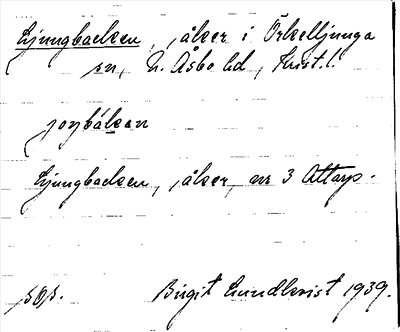 Ljungbacken, åker i Örkelljunga
sn, N. Åsbo hd, Krist.l.
joŋbákən
Ljungbacken, åker, nr 3 Attarp.
Birgit Lundkvist 1939.